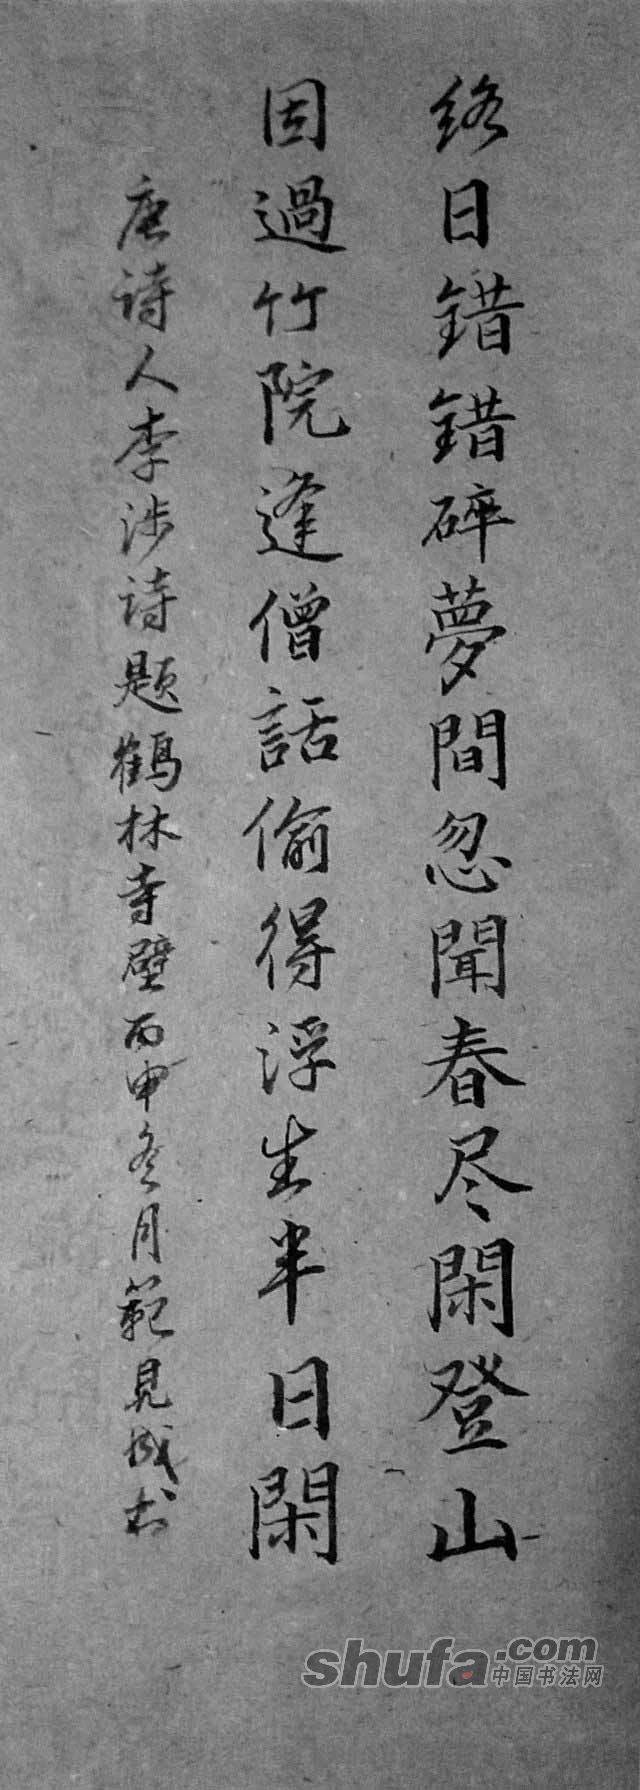 终日错錯碎夢間忽聞春尽閑登山
因過竹院逢僧話偷得浮生半日閑
唐诗人李涉诗题鶴林寺壁丙申冬月範見成书
shufa.com
中国书法网